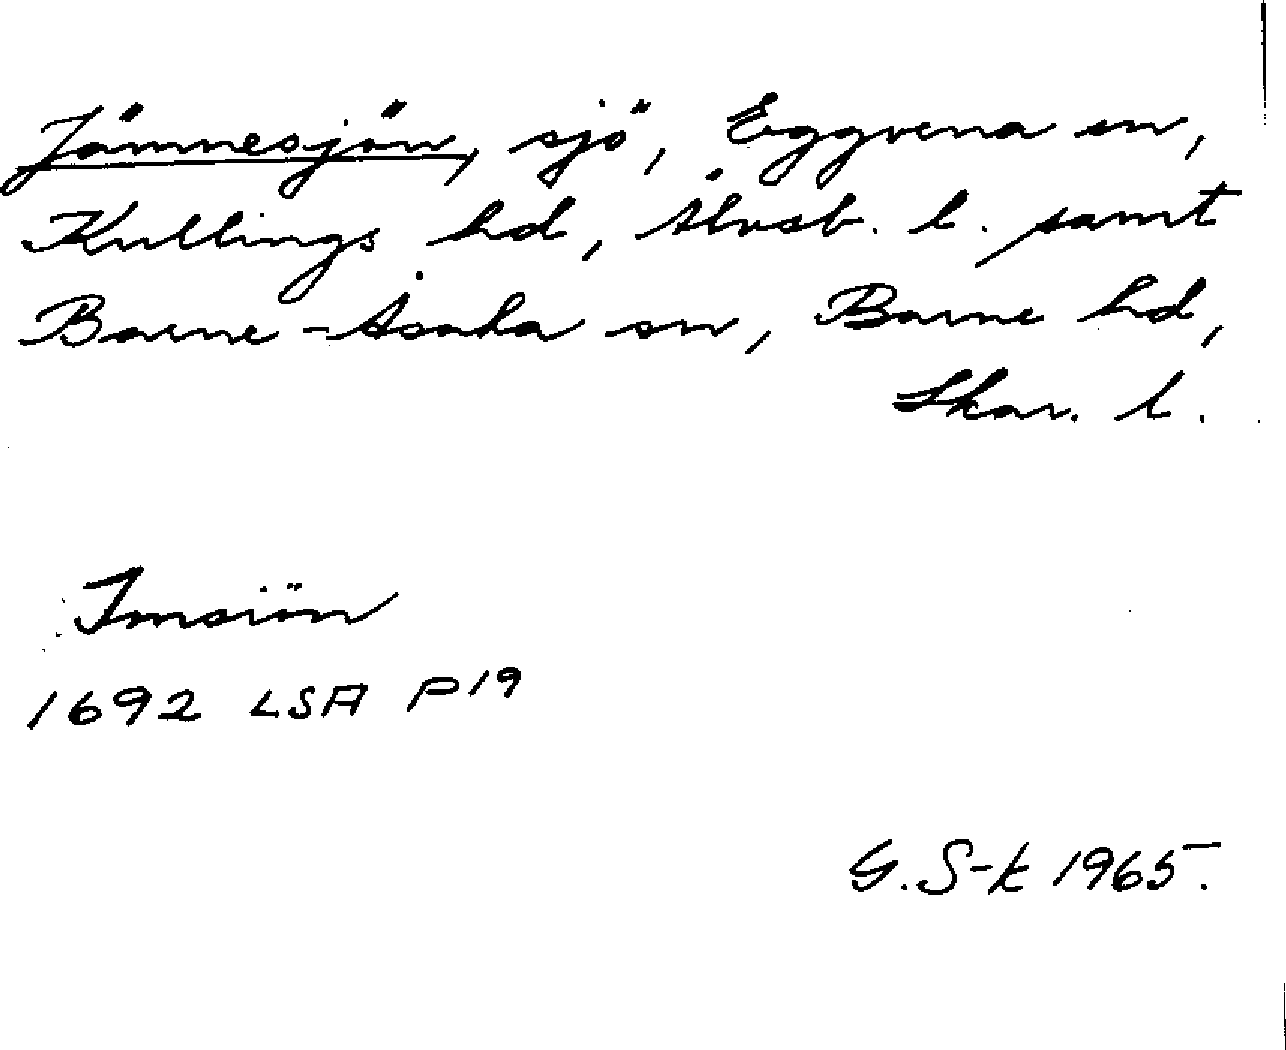 Jämnesjön, sjö, Eggvena sn,
Kullings hd, Älvsb. l. samt
Barne-Åsaka sn, Barne hd,
Skar. l.
Imsiön
1692 LSA P19
G. S-k 1965.